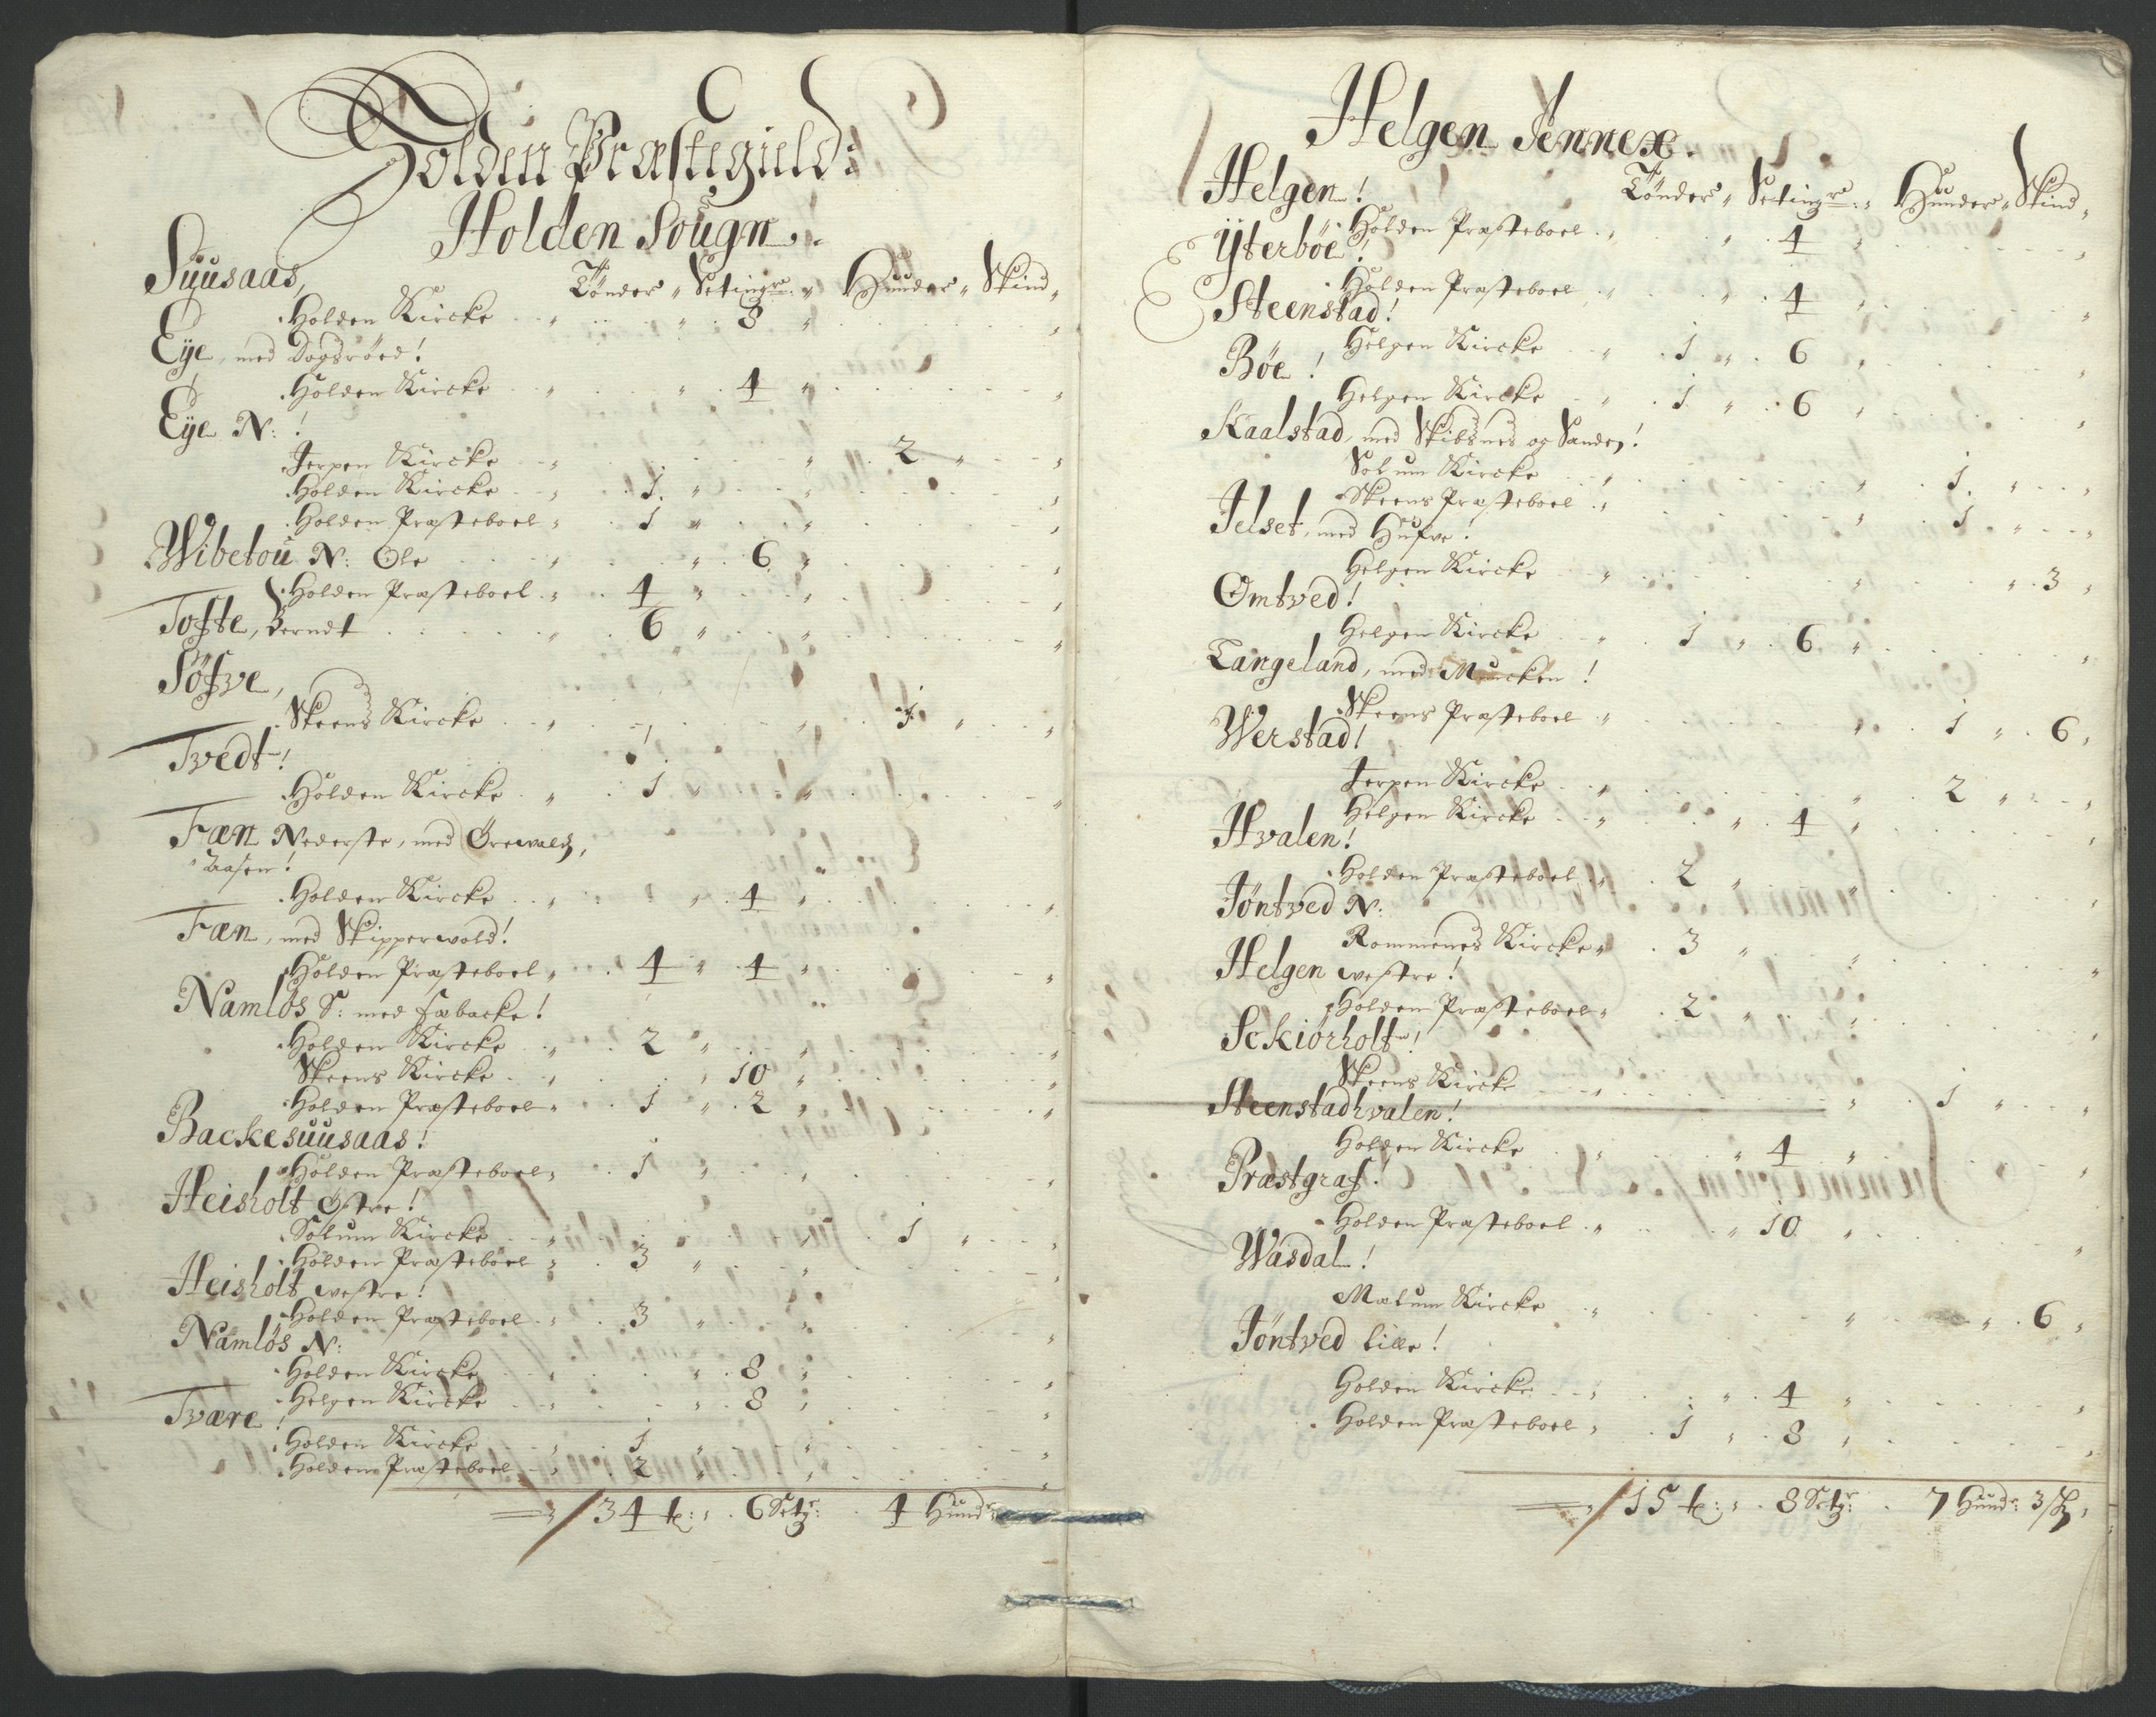 Holden Præstegield:
Holden Sougn.
Tønder, Setingr: Hunder, Skind
Suusaas,
Holden Kircke 8
Eije, med Dogsrøed!
Holden Kircke 4
Eije N:!
Jerpen Kircke 2
Holden Kircke 1
Holden Præsteboel 1
Wibetou N: Ole 6
Holden Præsteboel 4
Tofte, Berndt 6
Søfve,
Skeens Kircke 1
Tvedt!
Holden Kircke 1
Fæn Nederste, med Ørewald,
Aasen!
Holden Kircke 4
Fæn, med Skipperwold!
Holden Præsteboel 4 4
Namløs S: med Fæbacke!
Holden Kircke 2
Skeens Kircke 10
Holden Præsteboel 1 2
Backesuusaas!
Holden Præsteboel 1
Heisholt Østre!
Solum Kircke 1
Holden Præsteboel 3
Heisholt westre!
Holden Præsteboel 3
Namløs N:
Holden Kircke 8
Helgen Kircke 8
Tvære!
Holden Kircke 1
Holden Præsteboel 2
34 t: 6 Setgr: 4 Hundr
Helgen Annex.
Tønder, Setingr: Hunder, Skind
Helgen!
Holden Præsteboel 4
Ÿterbøe!
Holden Præsteboel 4
Steenstad!
Helgen Kircke 1 6
Bøe!
Helgen Kircke 1 6
Kaalstad, med Skibsnes og Sanden!
Solum Kircke 1
Skeens Præsteboel 1
Jelset, med Hufve!
Helgen Kircke 3
Omtved!
Helgen Kircke 1 6
Tangeland, med Muncken!
Skeens Præsteboel 1 6
Werstad!
Jerpen Kircke 2
Helgen Kircke 4
Hvalen!
Holden Præsteboel 2
Jøntved N:
Rommenes Kircke 3
Helgen westre!
Holden Præsteboel 2
Sckiørholt!
Skeens Kircke 1
Steenstadhvalen!
Holden Kircke 4
Præstgraf!
Holden Præsteboel 10
Wasdal!
Mælum Kircke 6
Jøntved lille!
Holden Kircke 4
Holden Præsteboel 1 8
15 t: 8 Setgr: 7 Hundr: 3 Sk